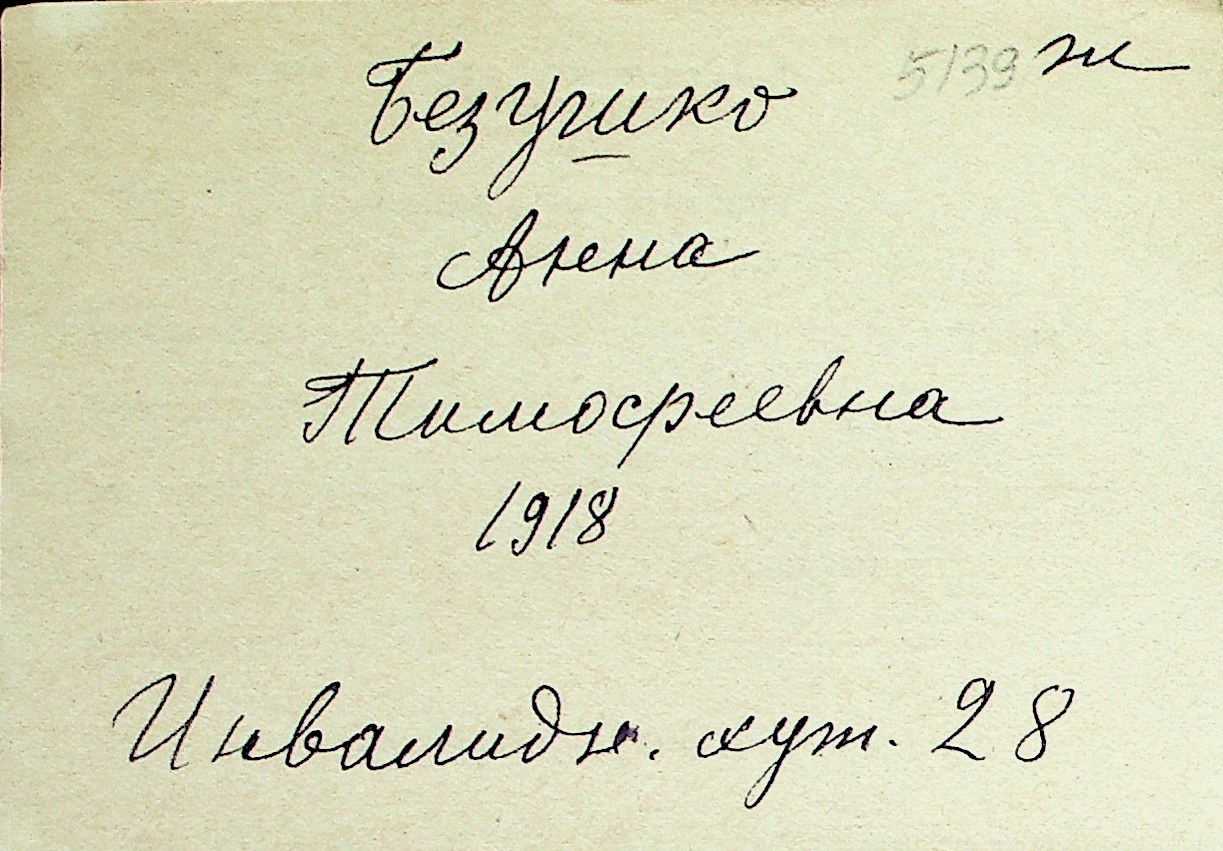 5139 ж
Безушко
Анна
Тимофеевна
1918
Инвалидн. хут. 28